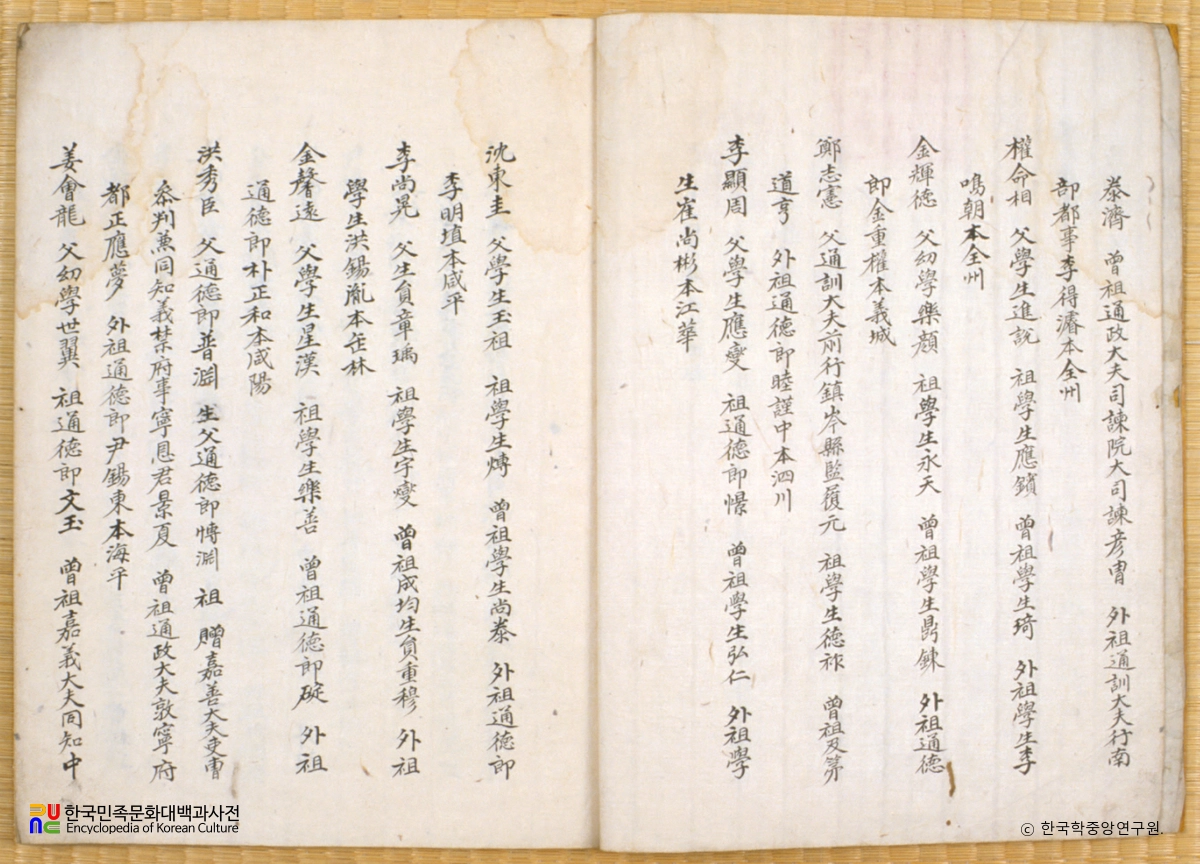 泰濟 曾祖通政大夫司諫院大司諫彦冑 外祖通訓大夫行南
部都事李得濬本全州
權命相 父學生進說 祖學生應鎖 曾祖學生琦 外祖學生李
鳴朝本全州
金輝德 父幼學樂顔 祖學生永天 曾祖學生鼎鍊 外祖通德
郎金重權本義城
鄭志憲 父通訓大夫前行鎮岑縣監履元 祖學生德祚 曾祖及第
道亨 外祖通德郎睦謹中本泗川
李顯周 父學生應燮 祖通德郎憬 曾祖學生弘仁 外祖學
生崔尚彬本江華
沈東圭 父學生玉祖 祖學生煿 曾祖學生尚泰 外祖通德郎
李明埴本咸平
李尚晃 父生負章瑀 祖學生宇燮 曾祖成均生負重穆 外祖
學生洪錫胤本任林
金馨遠 父學生星漢 祖學生樂善 曾祖通德郎碇 外祖
通德郎朴正和本咸陽
洪秀臣 父通德郎普淵 生父通德郎愽淵 祖 贈嘉善大夫吏曹
叅判兼同知義禁府事寧恩君景夏 曾祖通政大夫敦寧府
都正應夢 外祖通德郎尹錫東本海平
姜會龍 父幼學世翼 祖通德郎文玉 曾祖嘉義大夫同知中
한국민족문화대백과사전
Encyclopedia of Korean Culture
© 한국학중앙연구원.